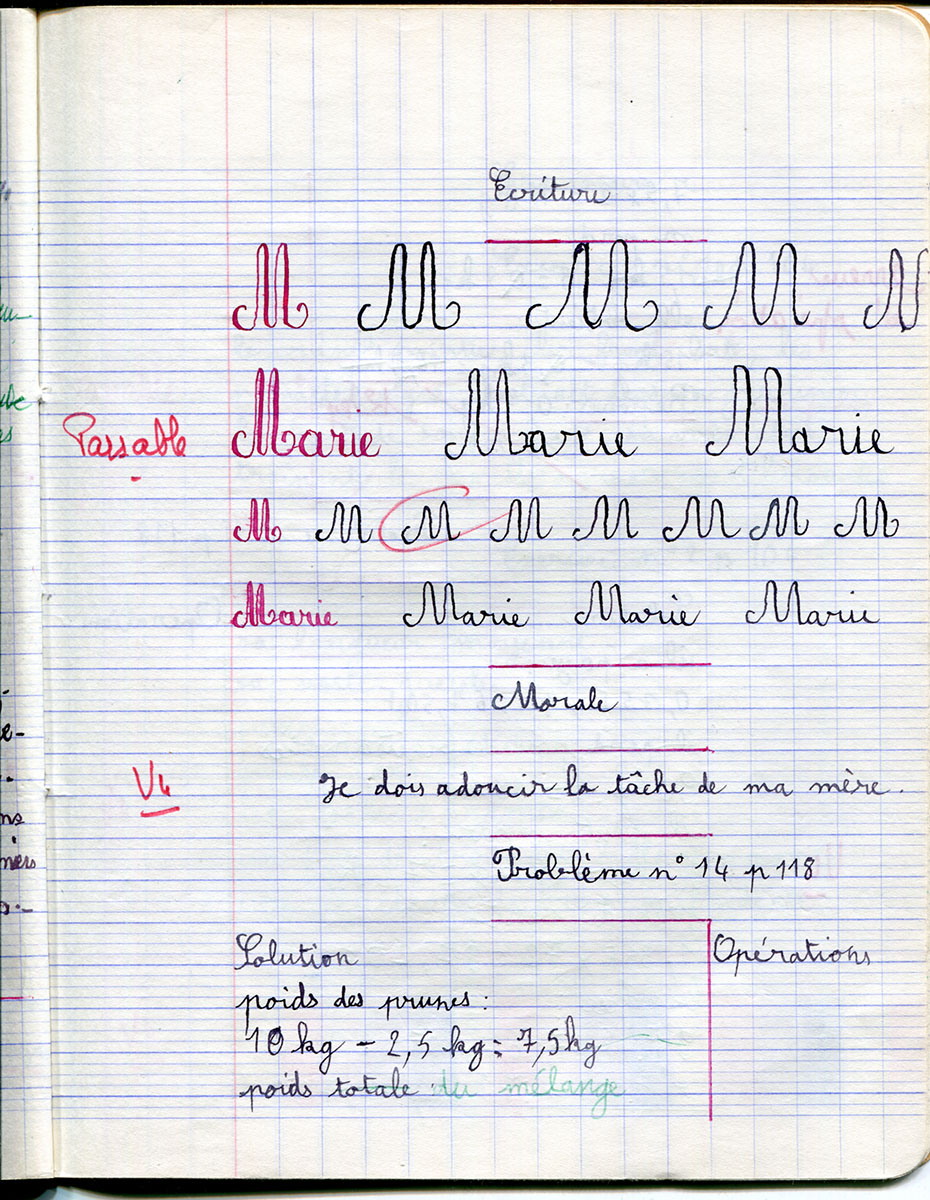 Ecriture
M M M M M
Passable
Marie Marie Marie
M M M M M M M M
Marie Marie Marie Marie
Morale
V4
Je dois adoucir la tâche de ma mère.
Problème n° 14 p 118
Solution
Opérations
poids des prunes :
10 kg - 2,5 kg = 7,5 kg
poids totale du mélange